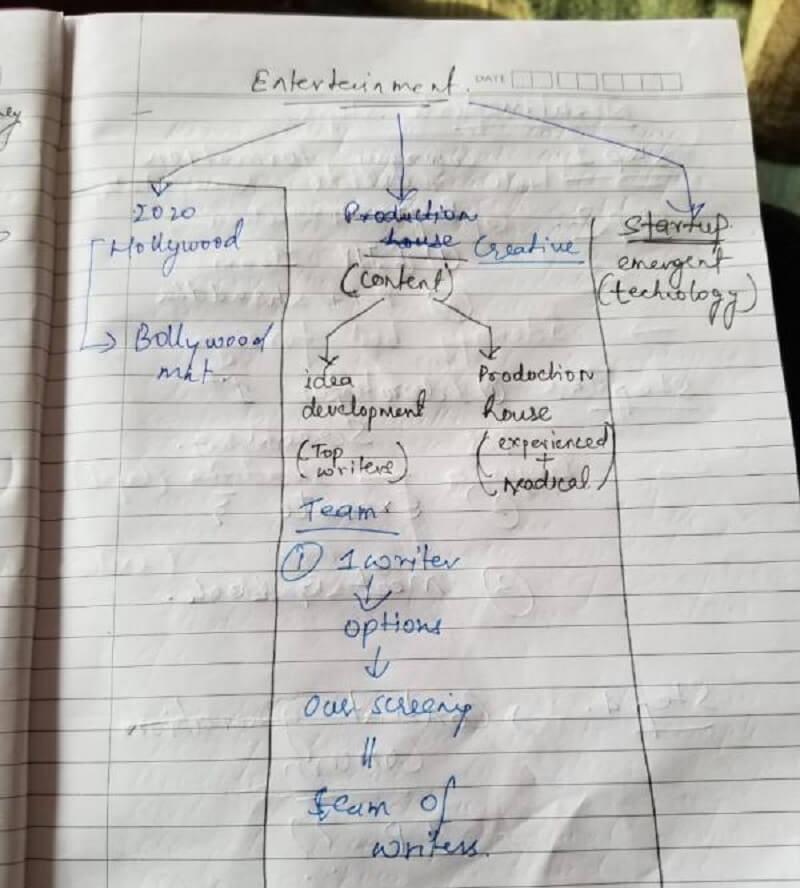 Entertainment.
DATE
2020
Hollywood
Bollywood
mkt.
Production
house
Creative
(content)
idea
development
(Top
writers)
Production
house
(experienced
+
radical)
Team:
① 1 writer
options
Our screenig
||
team of
writers.
Startup
emergent
(techology)